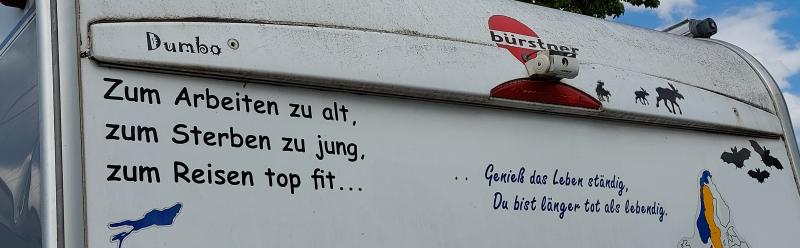 Dumbo
bürstner
Zum Arbeiten zu alt,
zum Sterben zu jung,
zum Reisen top fit...
.. Genieß das Leben ständig,
Du bist länger tot als lebendig.